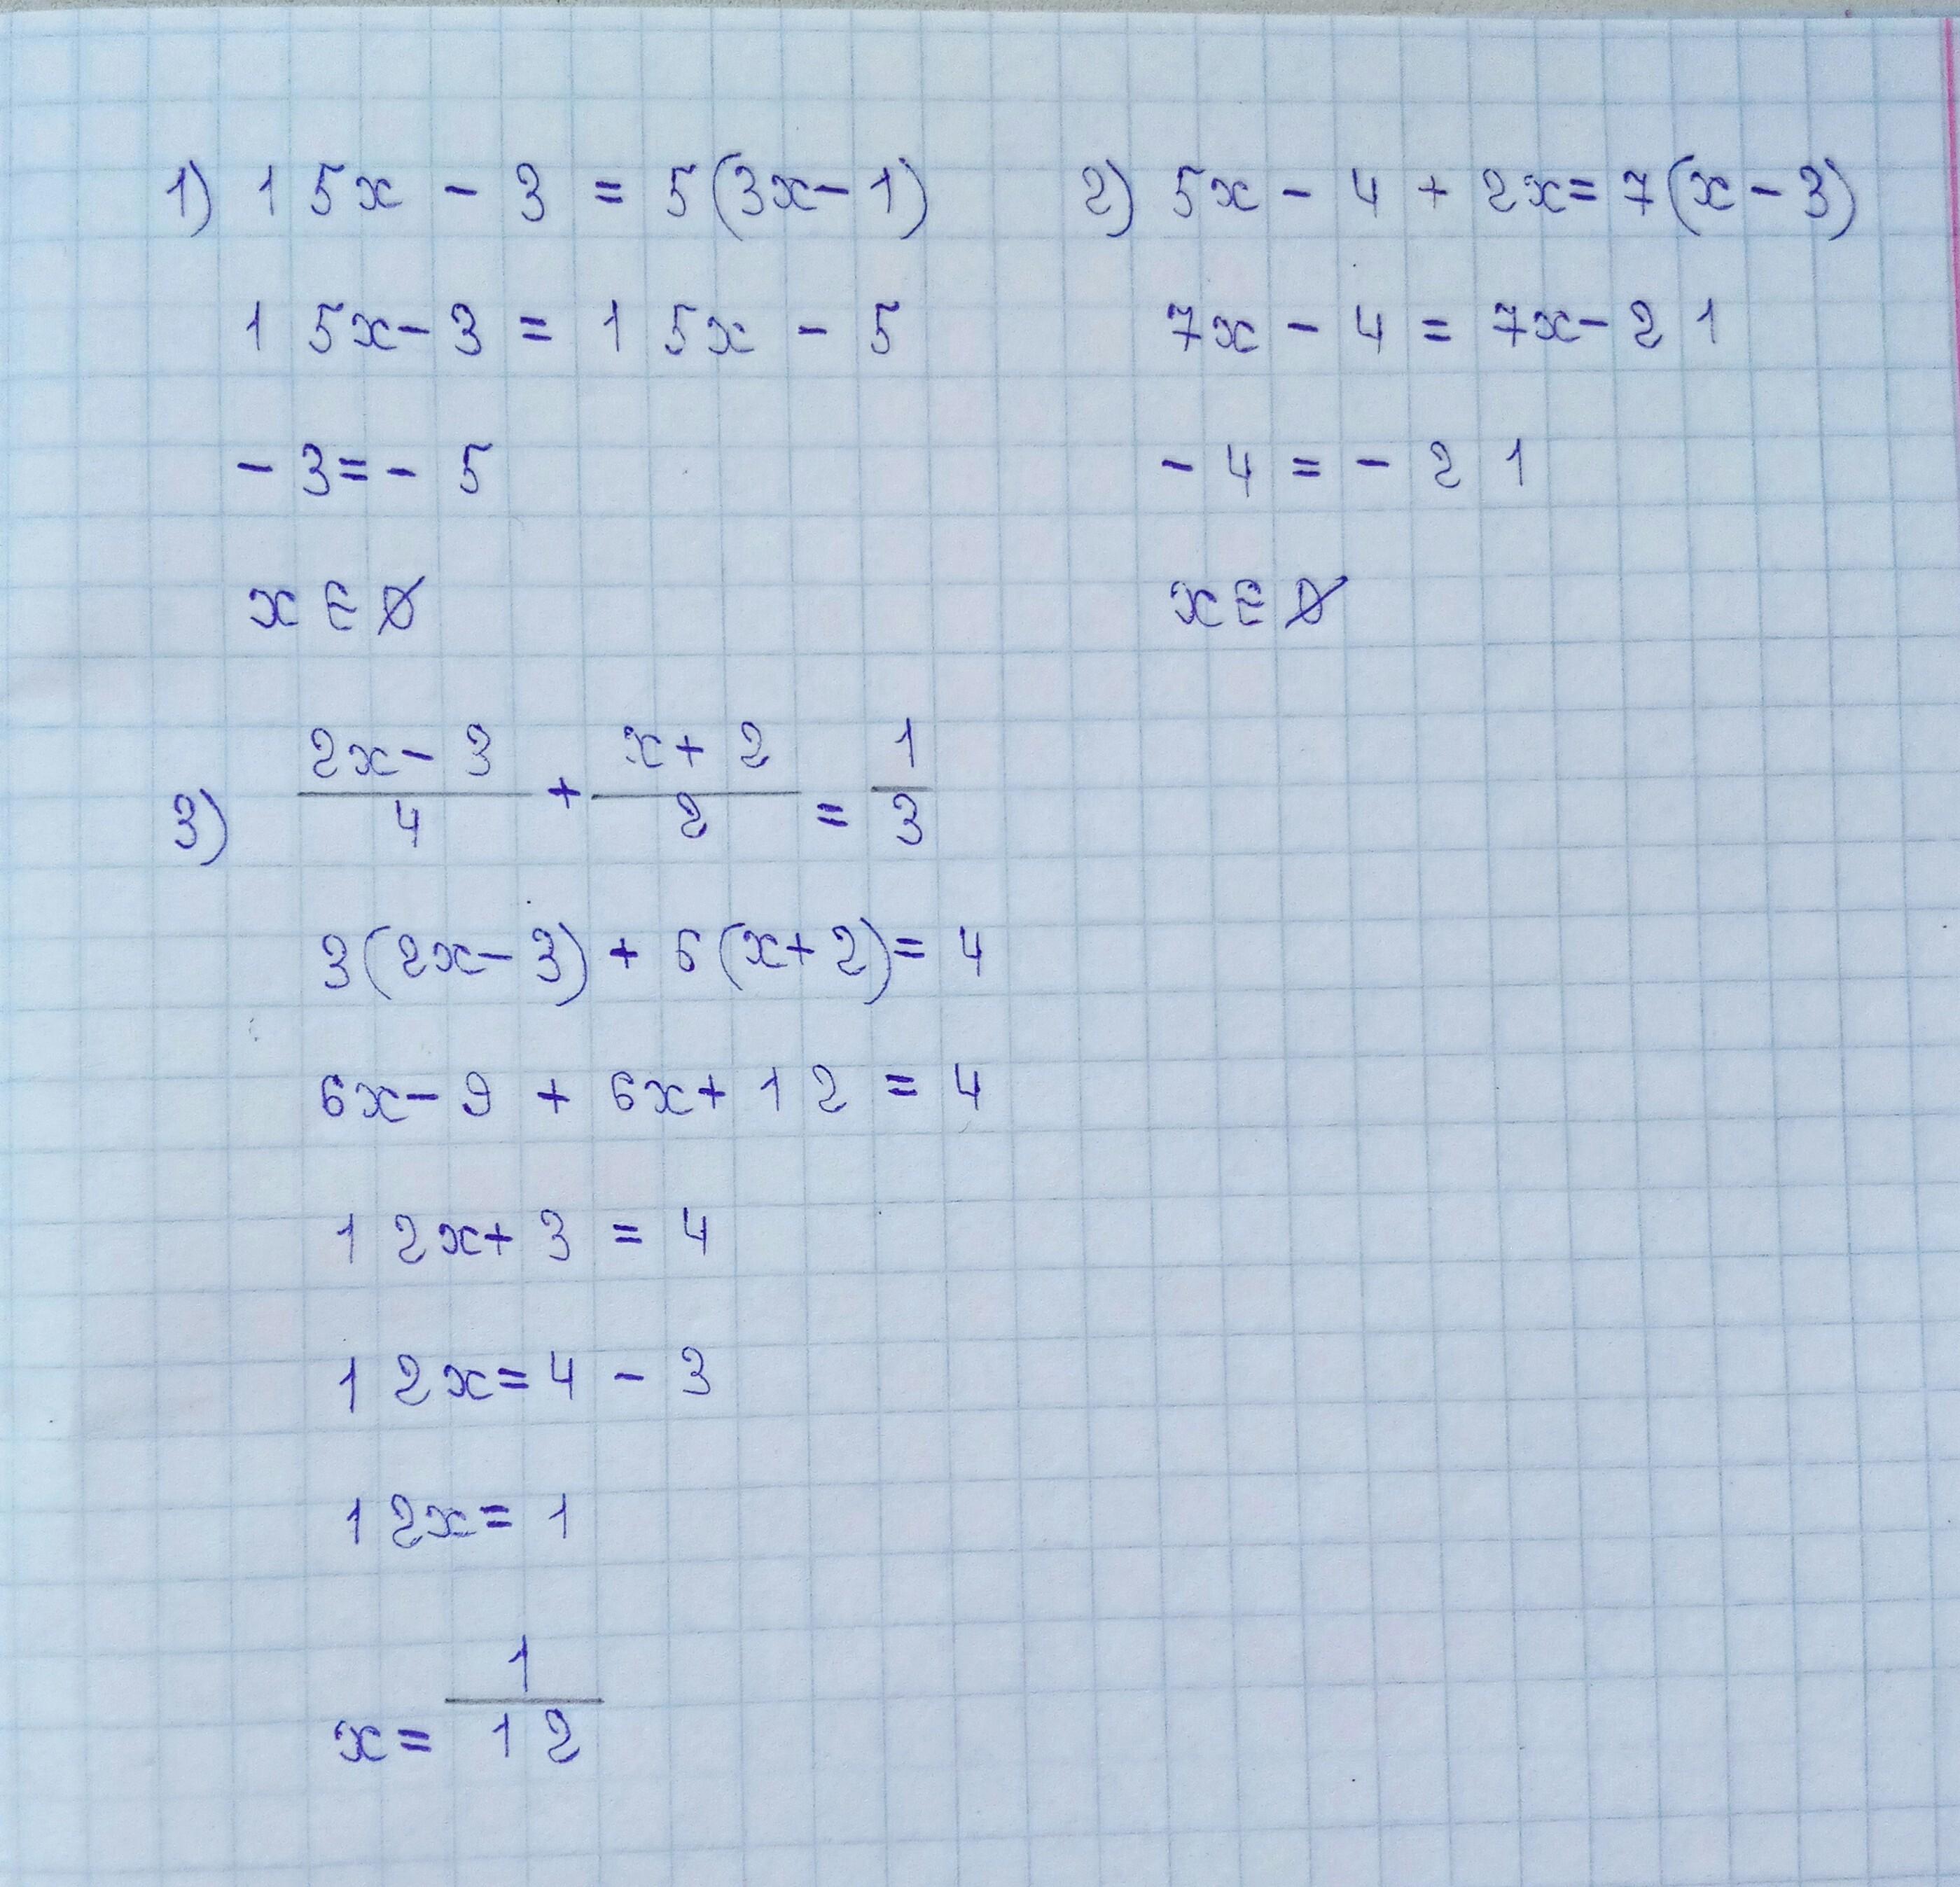 1) 15x - 3 = 5(3x - 1)
15x - 3 = 15x - 5
- 3 = - 5
x ∈ ∅
2) 5x - 4 + 2x = 7(x - 3)
7x - 4 = 7x - 21
- 4 = - 21
x ∈ ∅
3) (2x - 3)/4 + (x + 2)/2 = 1/3
3(2x - 3) + 6(x + 2) = 4
6x - 9 + 6x + 12 = 4
12x + 3 = 4
12x = 4 - 3
12x = 1
x = 1/12